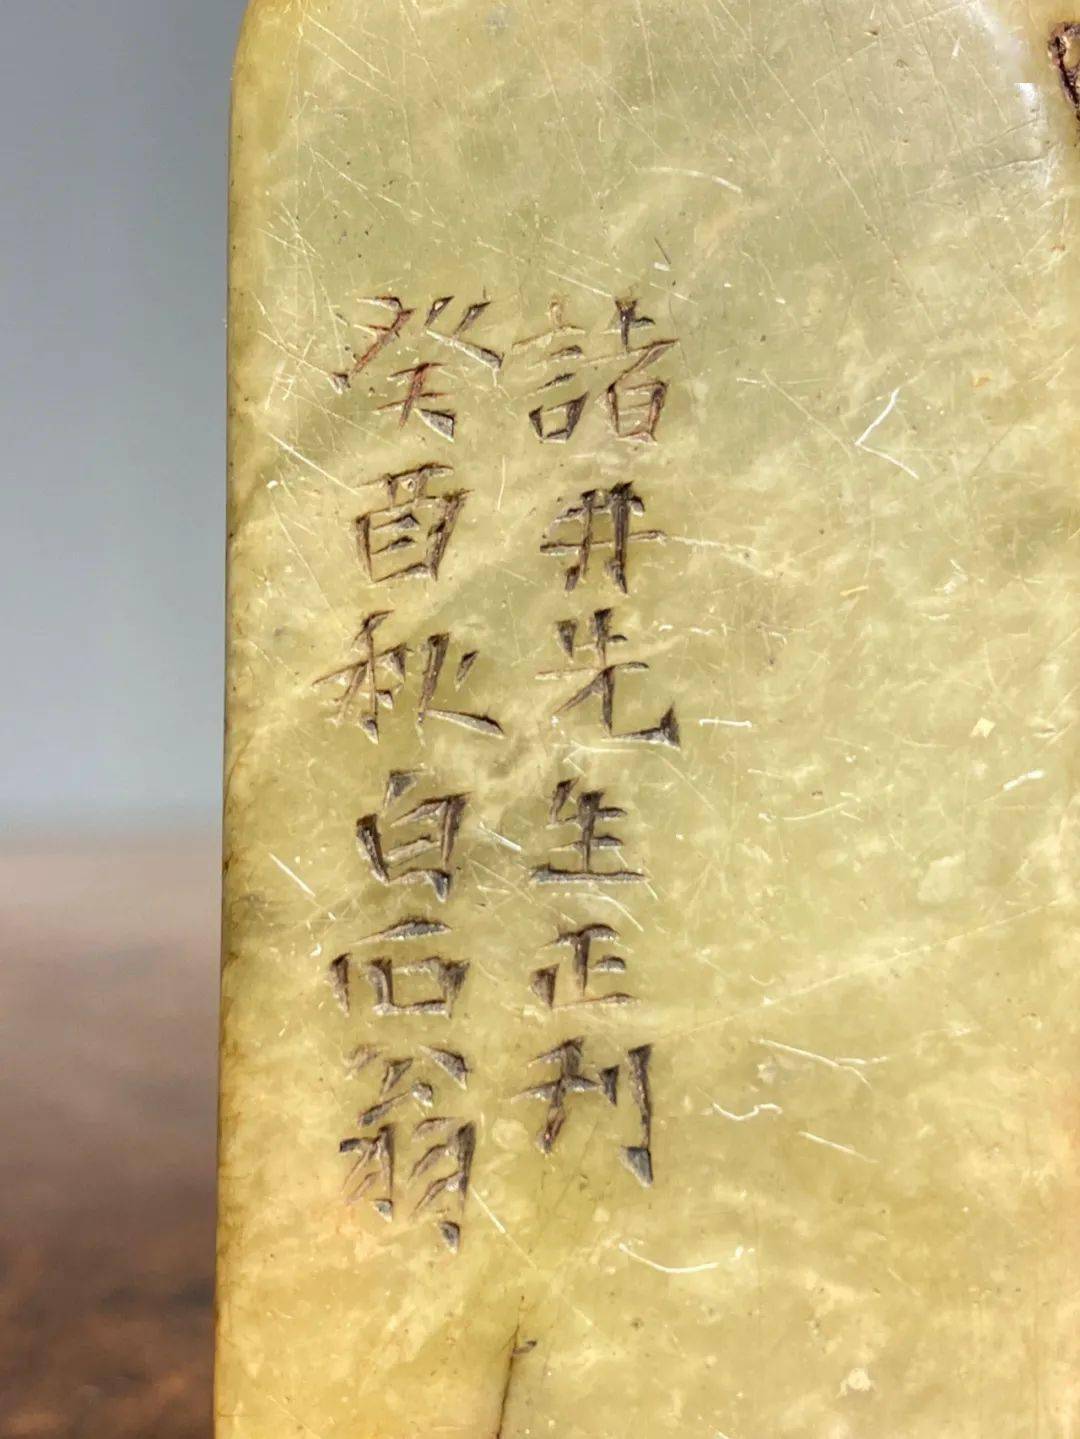 諸井先生正刊
癸酉秋白石翁